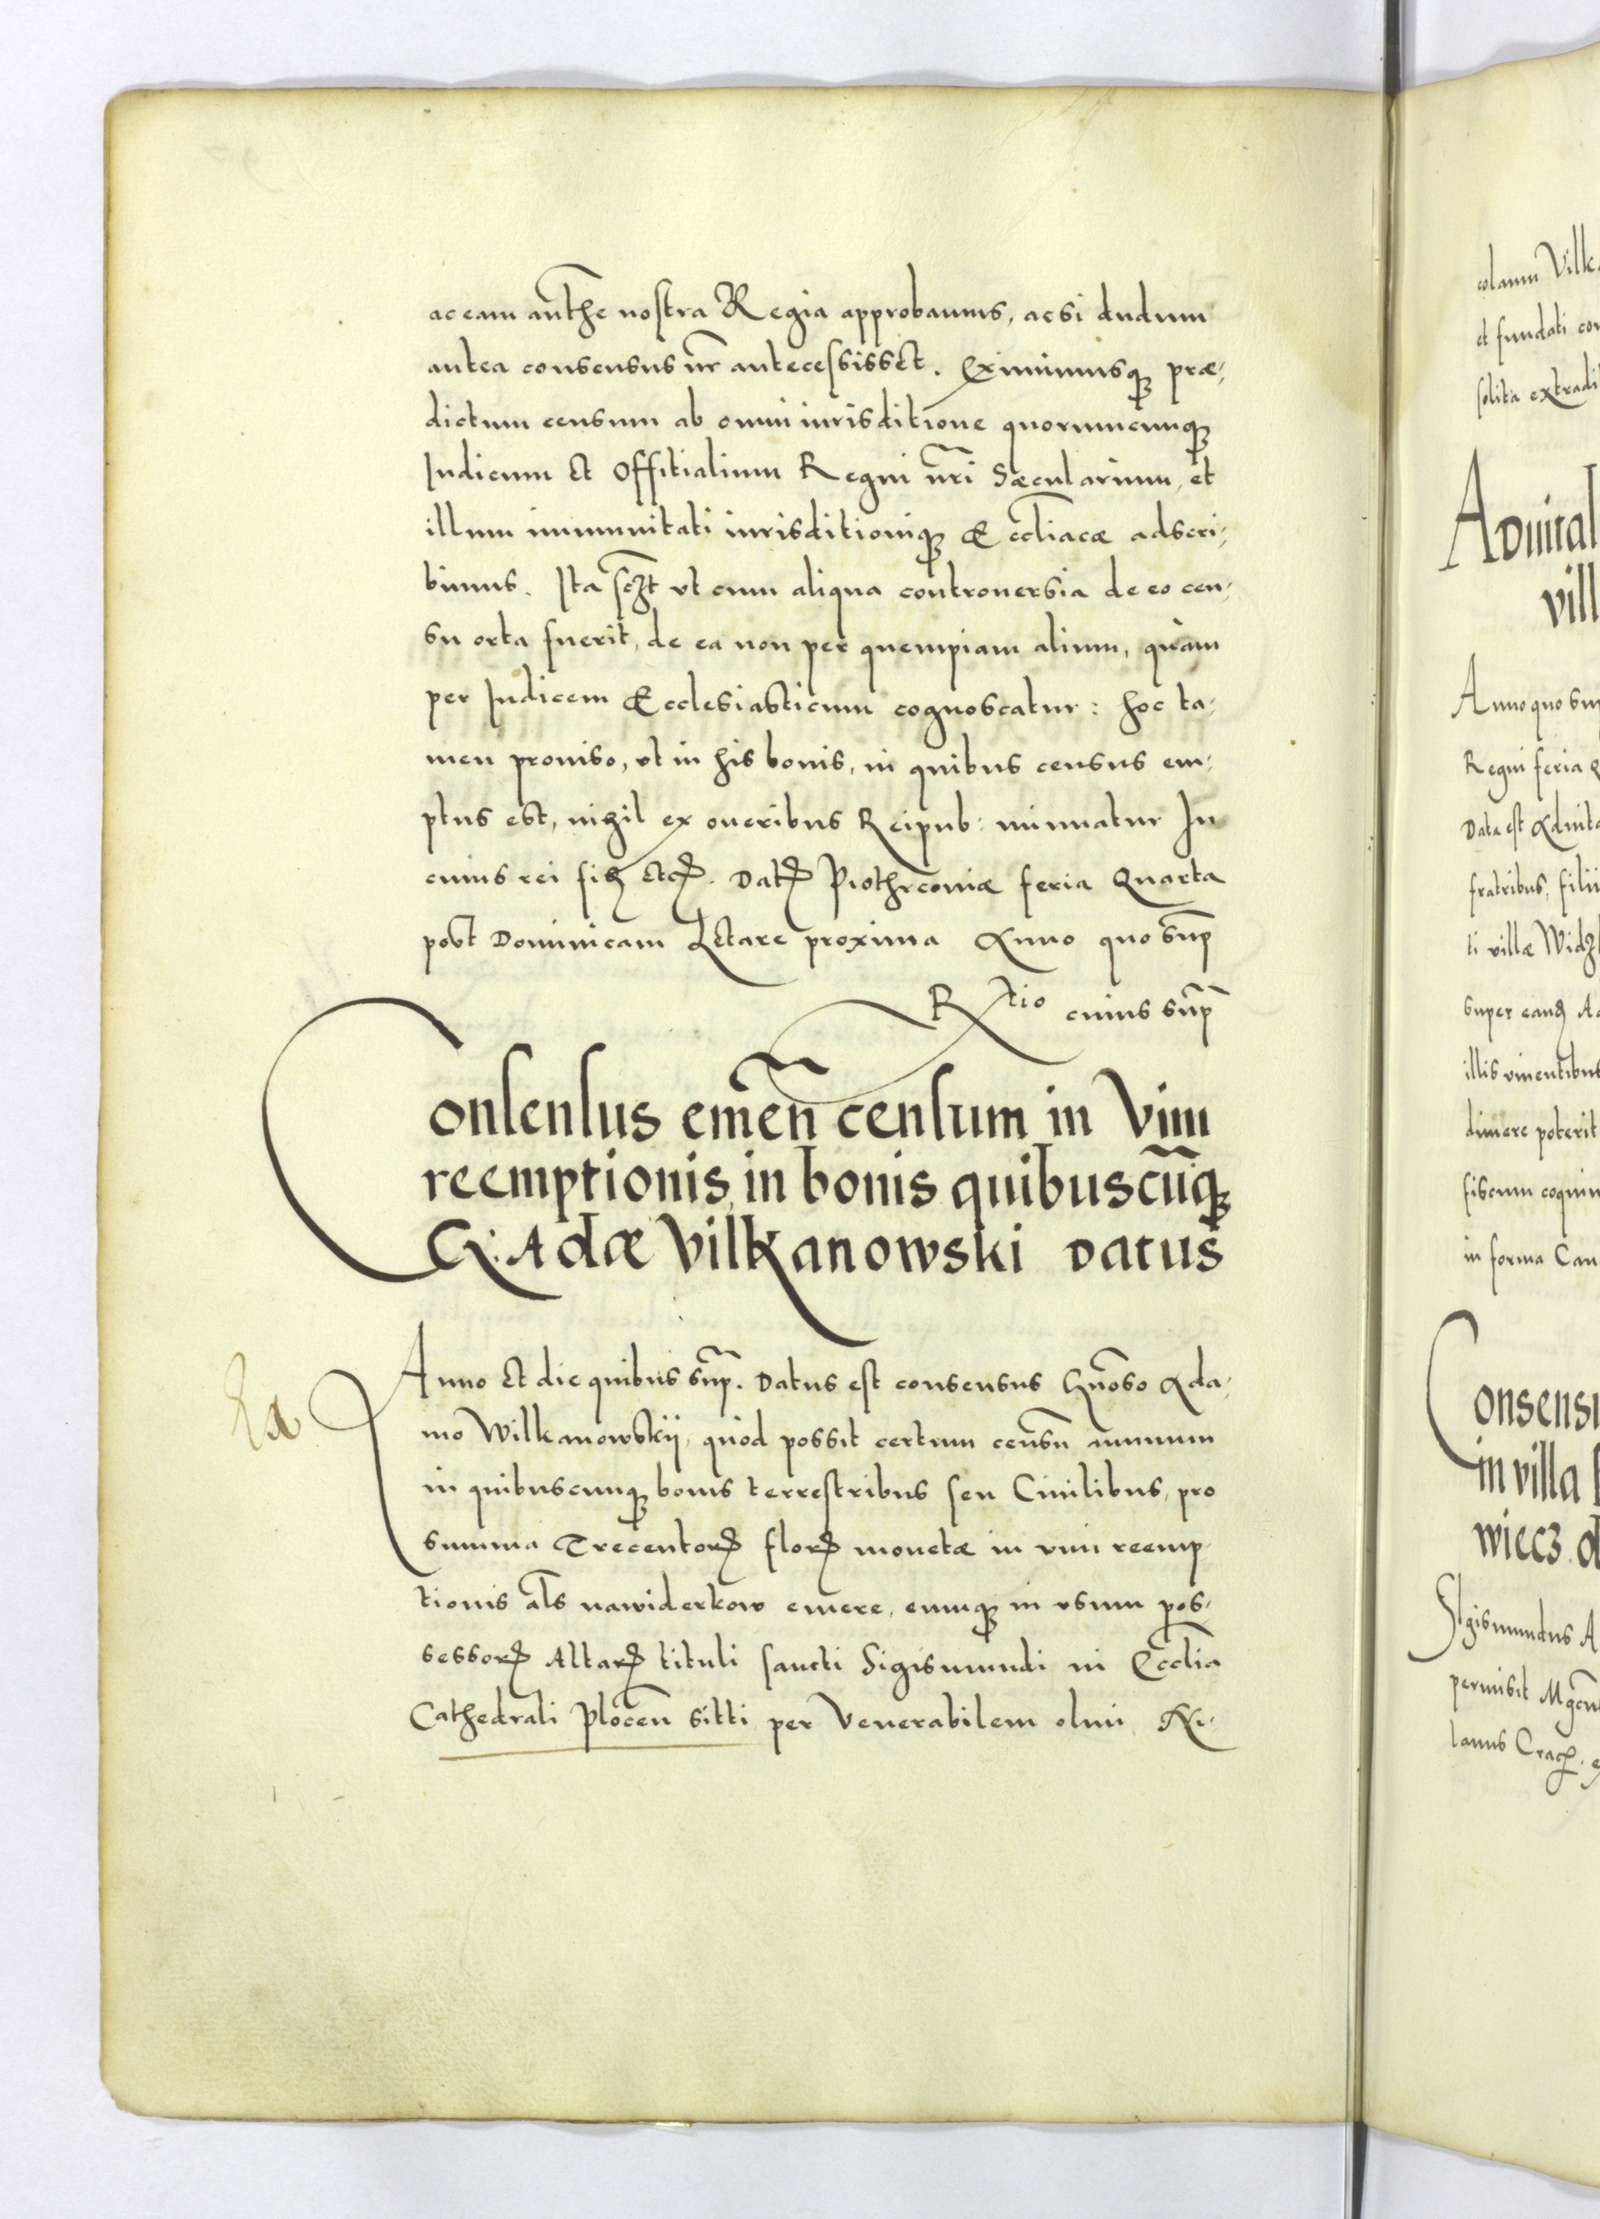 ac eam auͭthe nostra Regia approbauimus, acsi dudum
antea consensus nr̄ antecessisset. Eximimusq; præ-
dictum censum ab omni iurisditione quorumcunq;
Iudicum et Offitialium Regni nr̄i Sæcularium, et
illum immunitati iurisditioniq; Eccl̄iacæ adscri-
bimus. Ita scz̄t vt cum aliqua controuersia de eo cen-
su orta fuerit, de ea non per quempiam alium, quàm
per Iudicem Ecclesiasticum cognoscatur: hoc ta-
men prouiso, vt in his bonis, in quibus census em-
ptus est, nihil ex oneribus Reipub: minuatur In
cuius rei fiꝫ etcꝫ. Datꝫ Piothrconiæ feria Quarta
post Dominicam Lætare proxima Anno quo sup̄
Rtio cuius sup̄
Consensus emēn censum in Vim
reemptionis in bonis quibuscūq;
G: Adæ Vilkanowski Datus
Anno et die quibus sup̄. Datus est consensus Gn̄oso Ada-
mo Wilkanowskij, quòd possit certum censū annuum
in quibuscunq; bonis terrestribus seu Ciuilibus, pro
summa Trecentorꝫ florꝫ monetæ in vim reemp-
tionis al̄s nawiderkow emere, eumq; in vsum pos-
sessorꝫ Altarꝫ tituli sancti Sigismundi in Eccl̄ia
Cathedrali Plocēn sitti per Venerabilem olim Ni-
colaum Vilk
et fundati con
solita extradi
Admital
vill
Anno quo sup
Regni feria Q
Data est Admita
fratribus, filii
ti villæ Widz
super eandꝫ A
illis viuentibus
dimere poterit
fiscum coquin
in forma Can
Consensu
in villa
wiecz d
Sigismundus A
permisit Mgc̄n
lanus Cracꝫ.